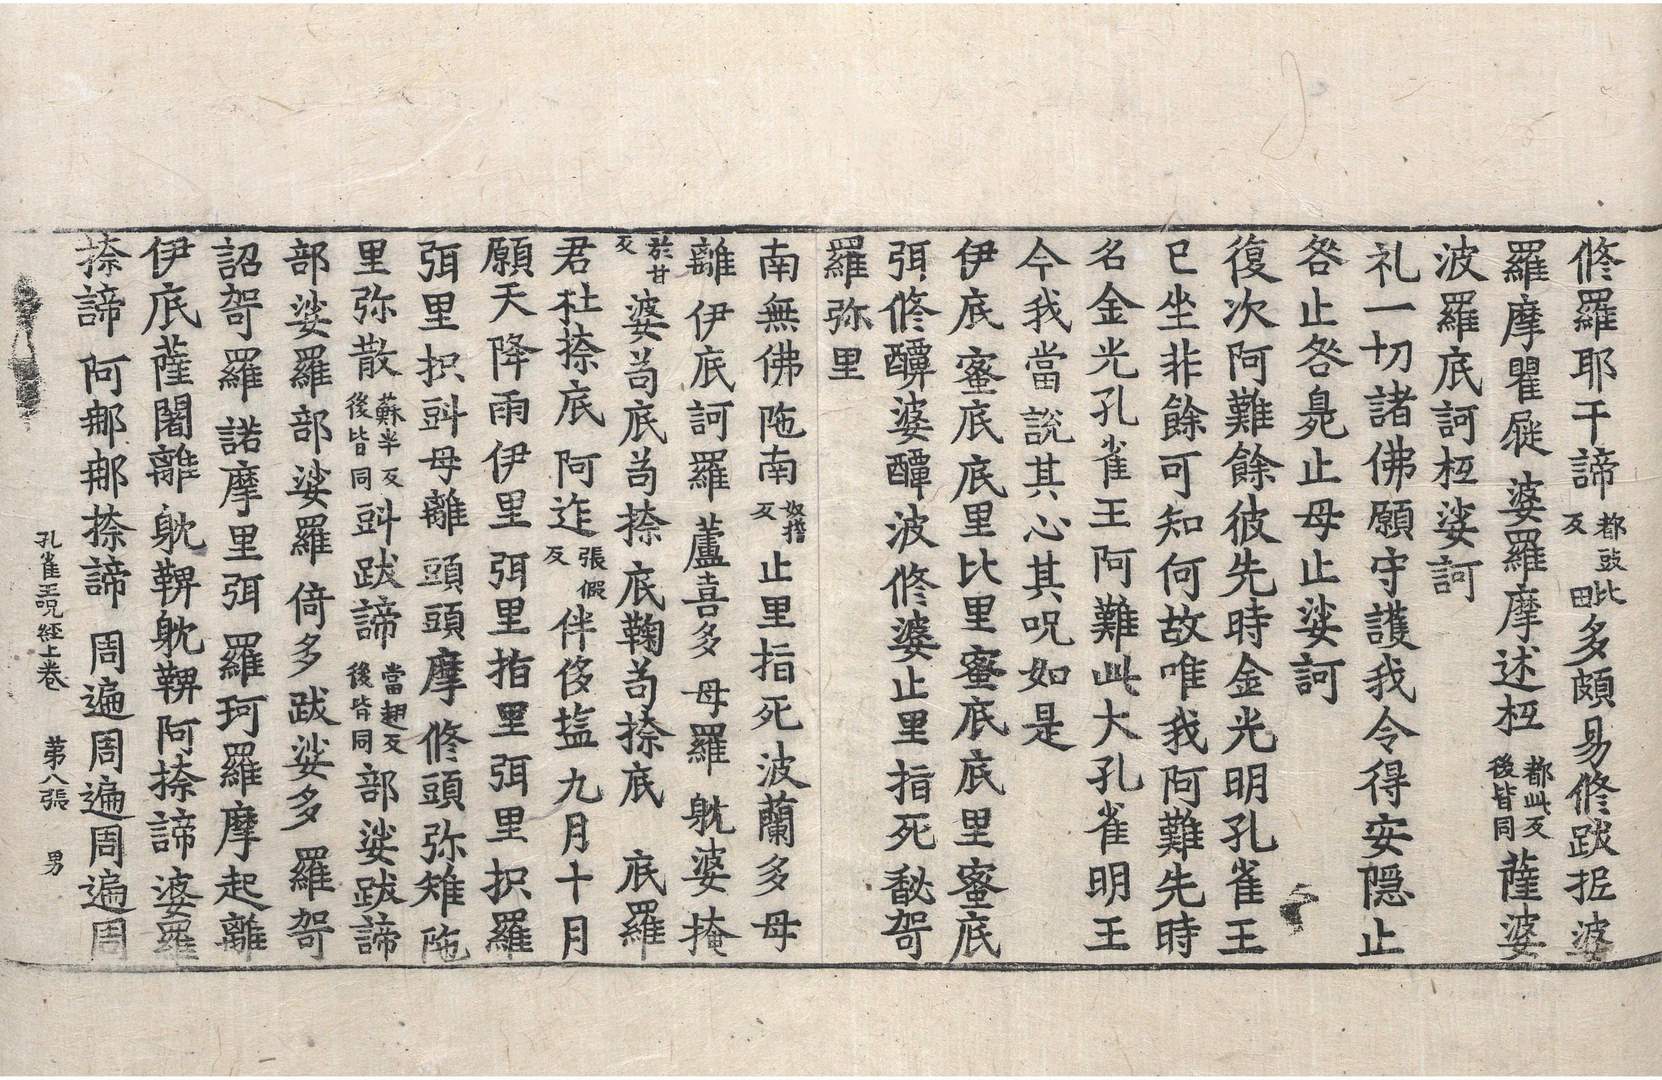 修羅耶干諦都豉反毗多頗易修跋抳婆
羅摩瞿屣 婆羅摩述柸都此反後皆同薩婆
波羅底訶柸娑訶
礼一切諸佛願守護我令得安隱止
咎止咎毳止母止娑訶
復次阿難餘彼先時金光明孔雀王
已坐非餘可知何故唯我阿難先時
名金光孔雀王阿難此大孔雀明王
今我當說其心其呪如是
伊底蜜底底里比里蜜底底里蜜底
弭修醰婆醰波修婆止里指死馝哿
羅弥里
南無佛陁南奴擔反止里指死波蘭多母
離伊底訶羅 蘆喜多 母羅 躭婆 掩
於甘反婆苟底苟捺 底鞠苟捺底 底羅
君杜捺底 阿迮張假反伴侈搤九月十月
願天降雨伊里弭里抬里弭里抧羅
弭里抧㪷母離 頭頭摩 修頭弥雉陁
里弥散蘇半反後皆同㪷跋諦當翅反後皆同部娑跋諦
部娑羅部娑羅 倚多跋娑多 羅哿
詔哿羅 諾摩里弭 羅珂羅摩起離
伊底薩闍離 躭鞞躭鞞阿捺諦 婆羅
捺諦 阿郍郍捺諦 周遍周遍周遍周
孔雀王呪經上卷 第八張 男